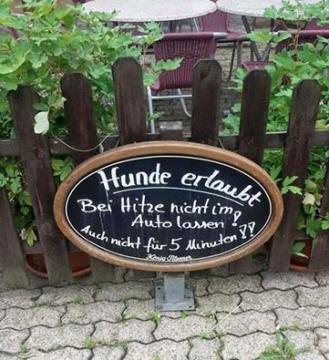 Hunde erlaubt
Bei Hitze nicht im
Auto lassen!
Auch nicht für 5 Minuten!!
König Pilsener